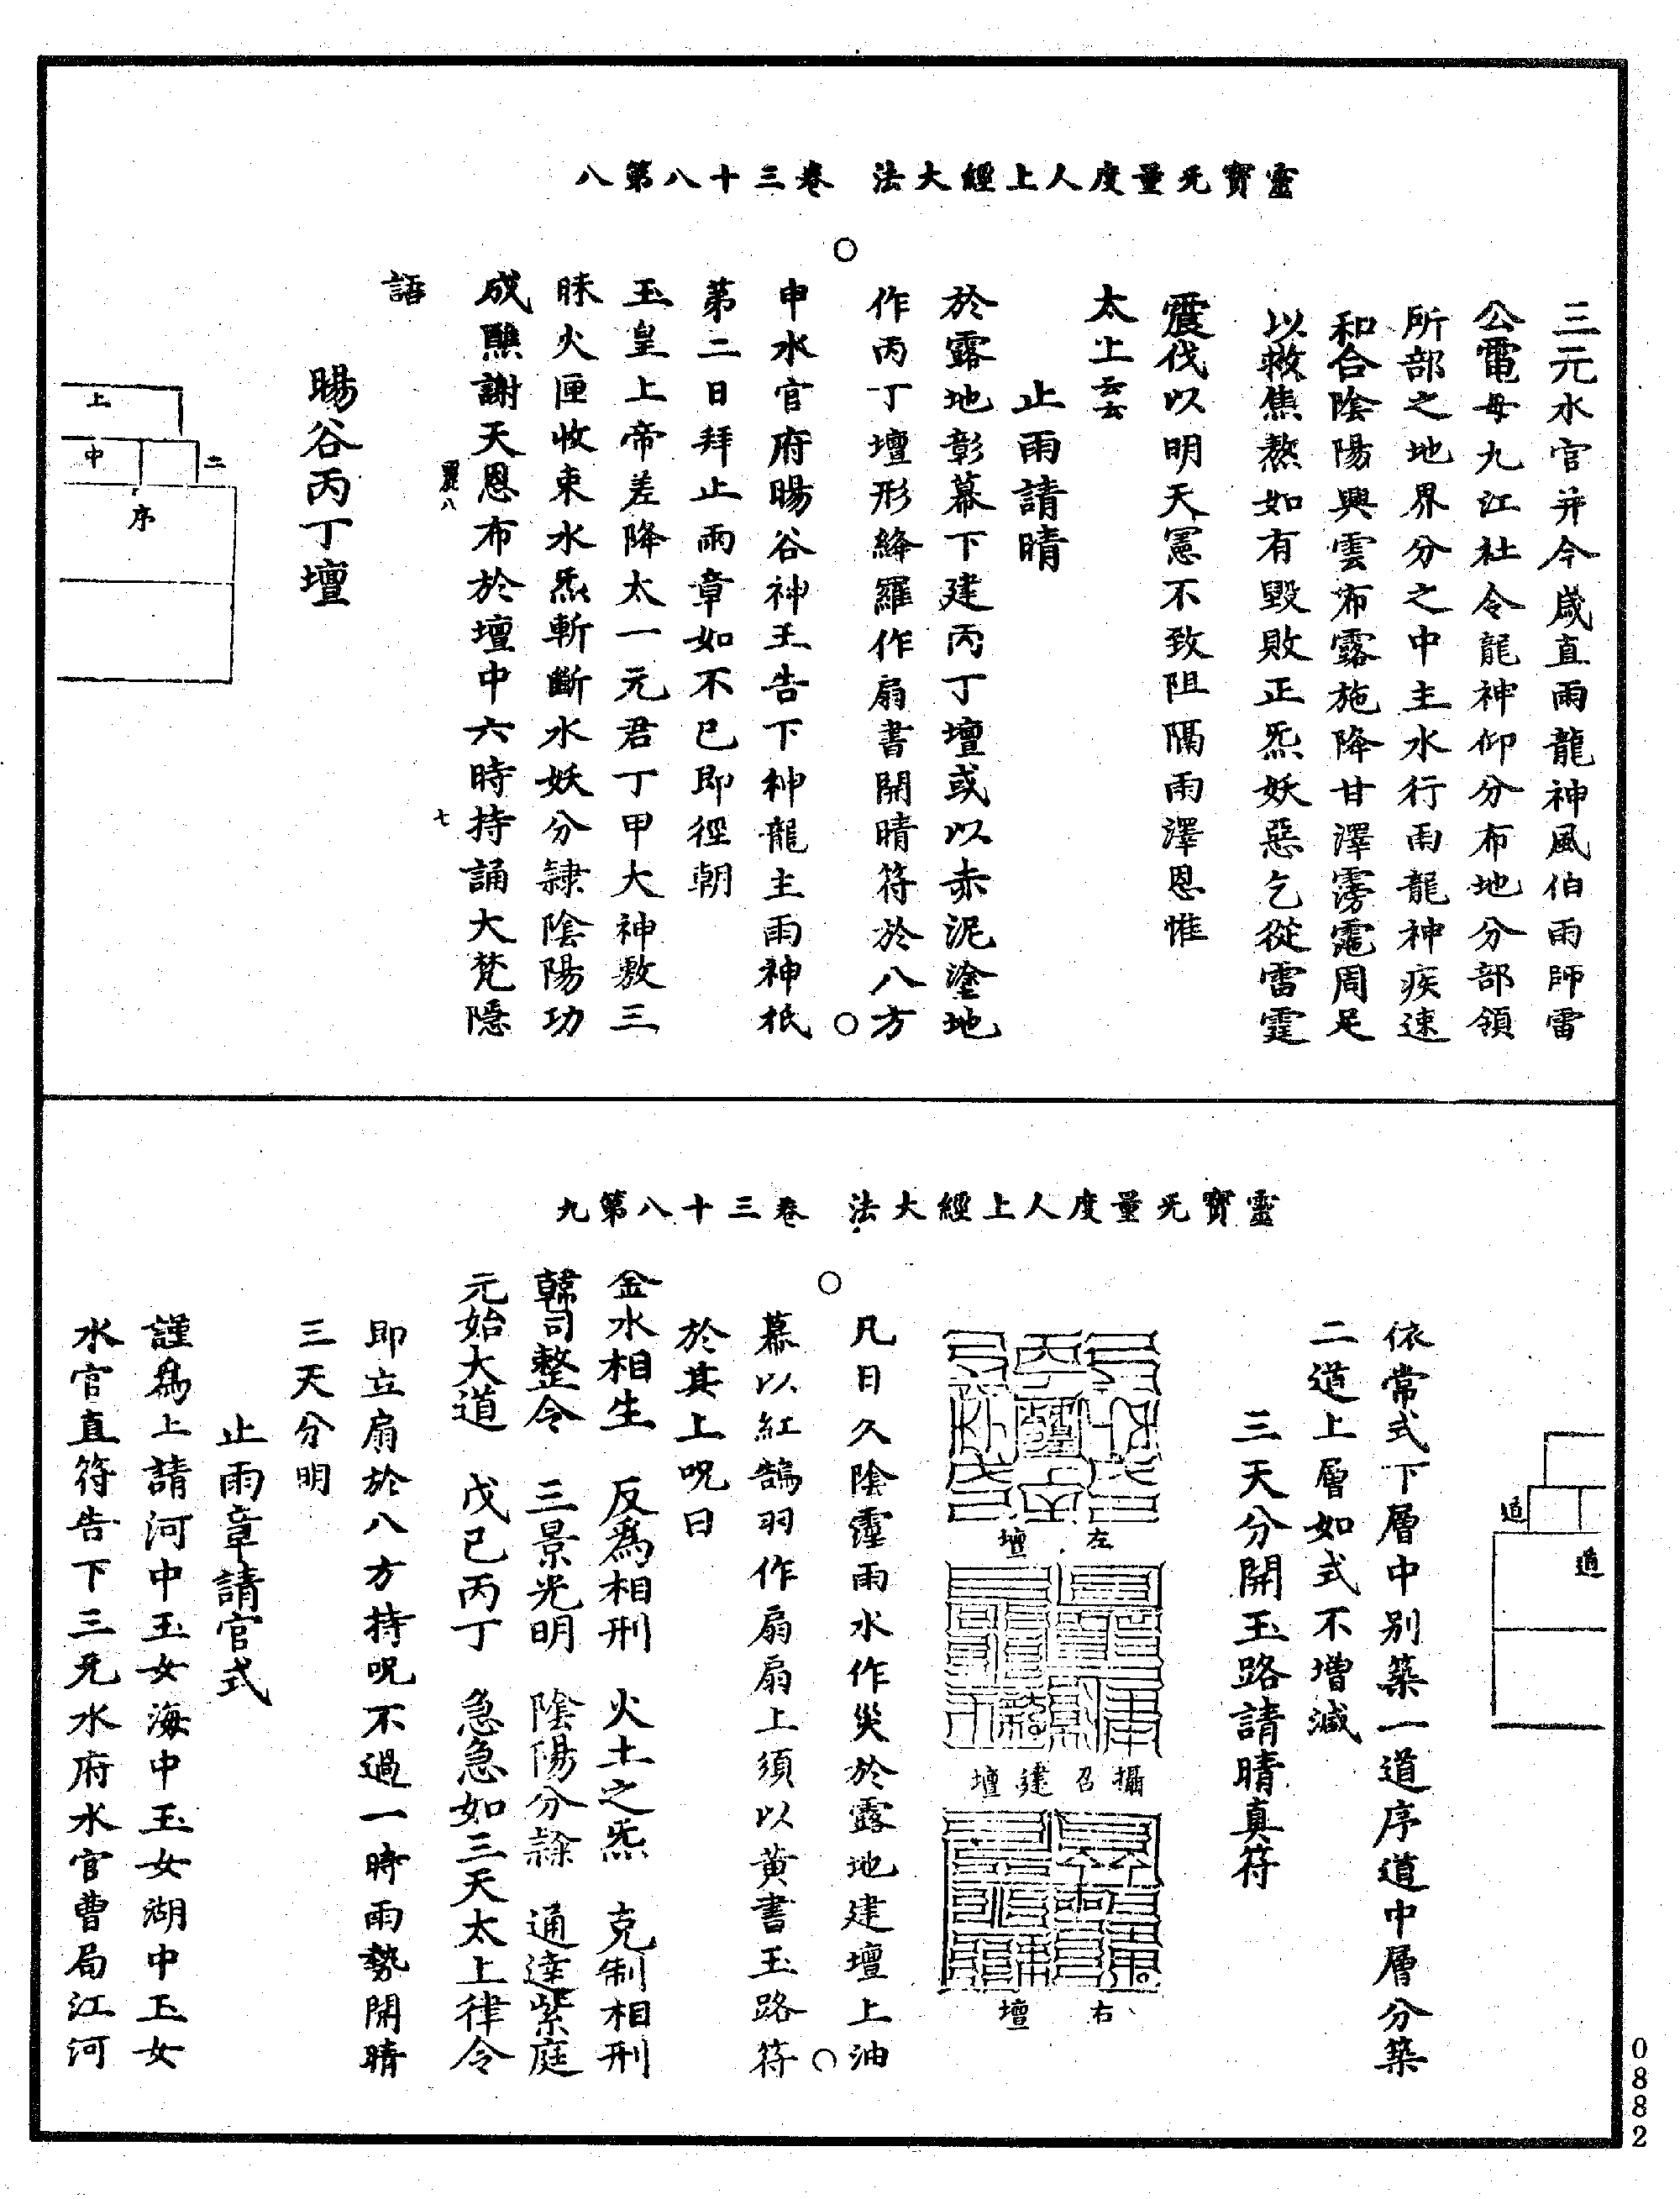 靈寶无量度人上經大法　卷三十八第八
三元水官并今歲直雨龍神風伯雨師雷
公電母九江社令龍神仰分布地分部領
所部之地界分之中主水行雨龍神疾速
和合陰陽興雲布露施降甘澤霶霮周足
以救焦熬如有毀敗正炁妖惡乞從雷霆
震伐以明天憲不致阻隔雨澤恩惟
太上云云
止雨請晴
於露地彰幕下建丙丁壇或以赤泥塗地
作丙丁壇形絳羅作扇書開晴符於八方
申水官府暘谷神王告下神龍主雨神祇
第二日拜止雨章如不已即徑朝
玉皇上帝差降太一元君丁甲大神敷三
昧火匣收束水炁斬斷水妖分隷陰陽功
成醮謝天恩布於壇中六時持誦大梵隱
語
罷八　七
暘谷丙丁壇
上
中
二
序
靈寶无量度人上經大法　卷三十八第九
道
道
依常式下層中别築一道序道中層分築
二道上層如式不增減
三天分開玉路請晴真符
左壇
攝召建壇
右壇
凡日久陰霪雨水作災於露地建壇上油
幕以紅鵠羽作扇扇上須以黄書玉路符
於其上呪曰
金水相生　反爲相刑　火土之炁　克制相刑
韓司整令　三景光明　陰陽分隸　通達紫庭
元始大道　戊己丙丁　急急如三天太上律令
即立扇於八方持呪不過一時雨勢開晴
三天分明
止雨章請官式
謹爲上請河中玉女海中玉女湖中玉女
水官直符告下三元水府水官曹局江河
0882